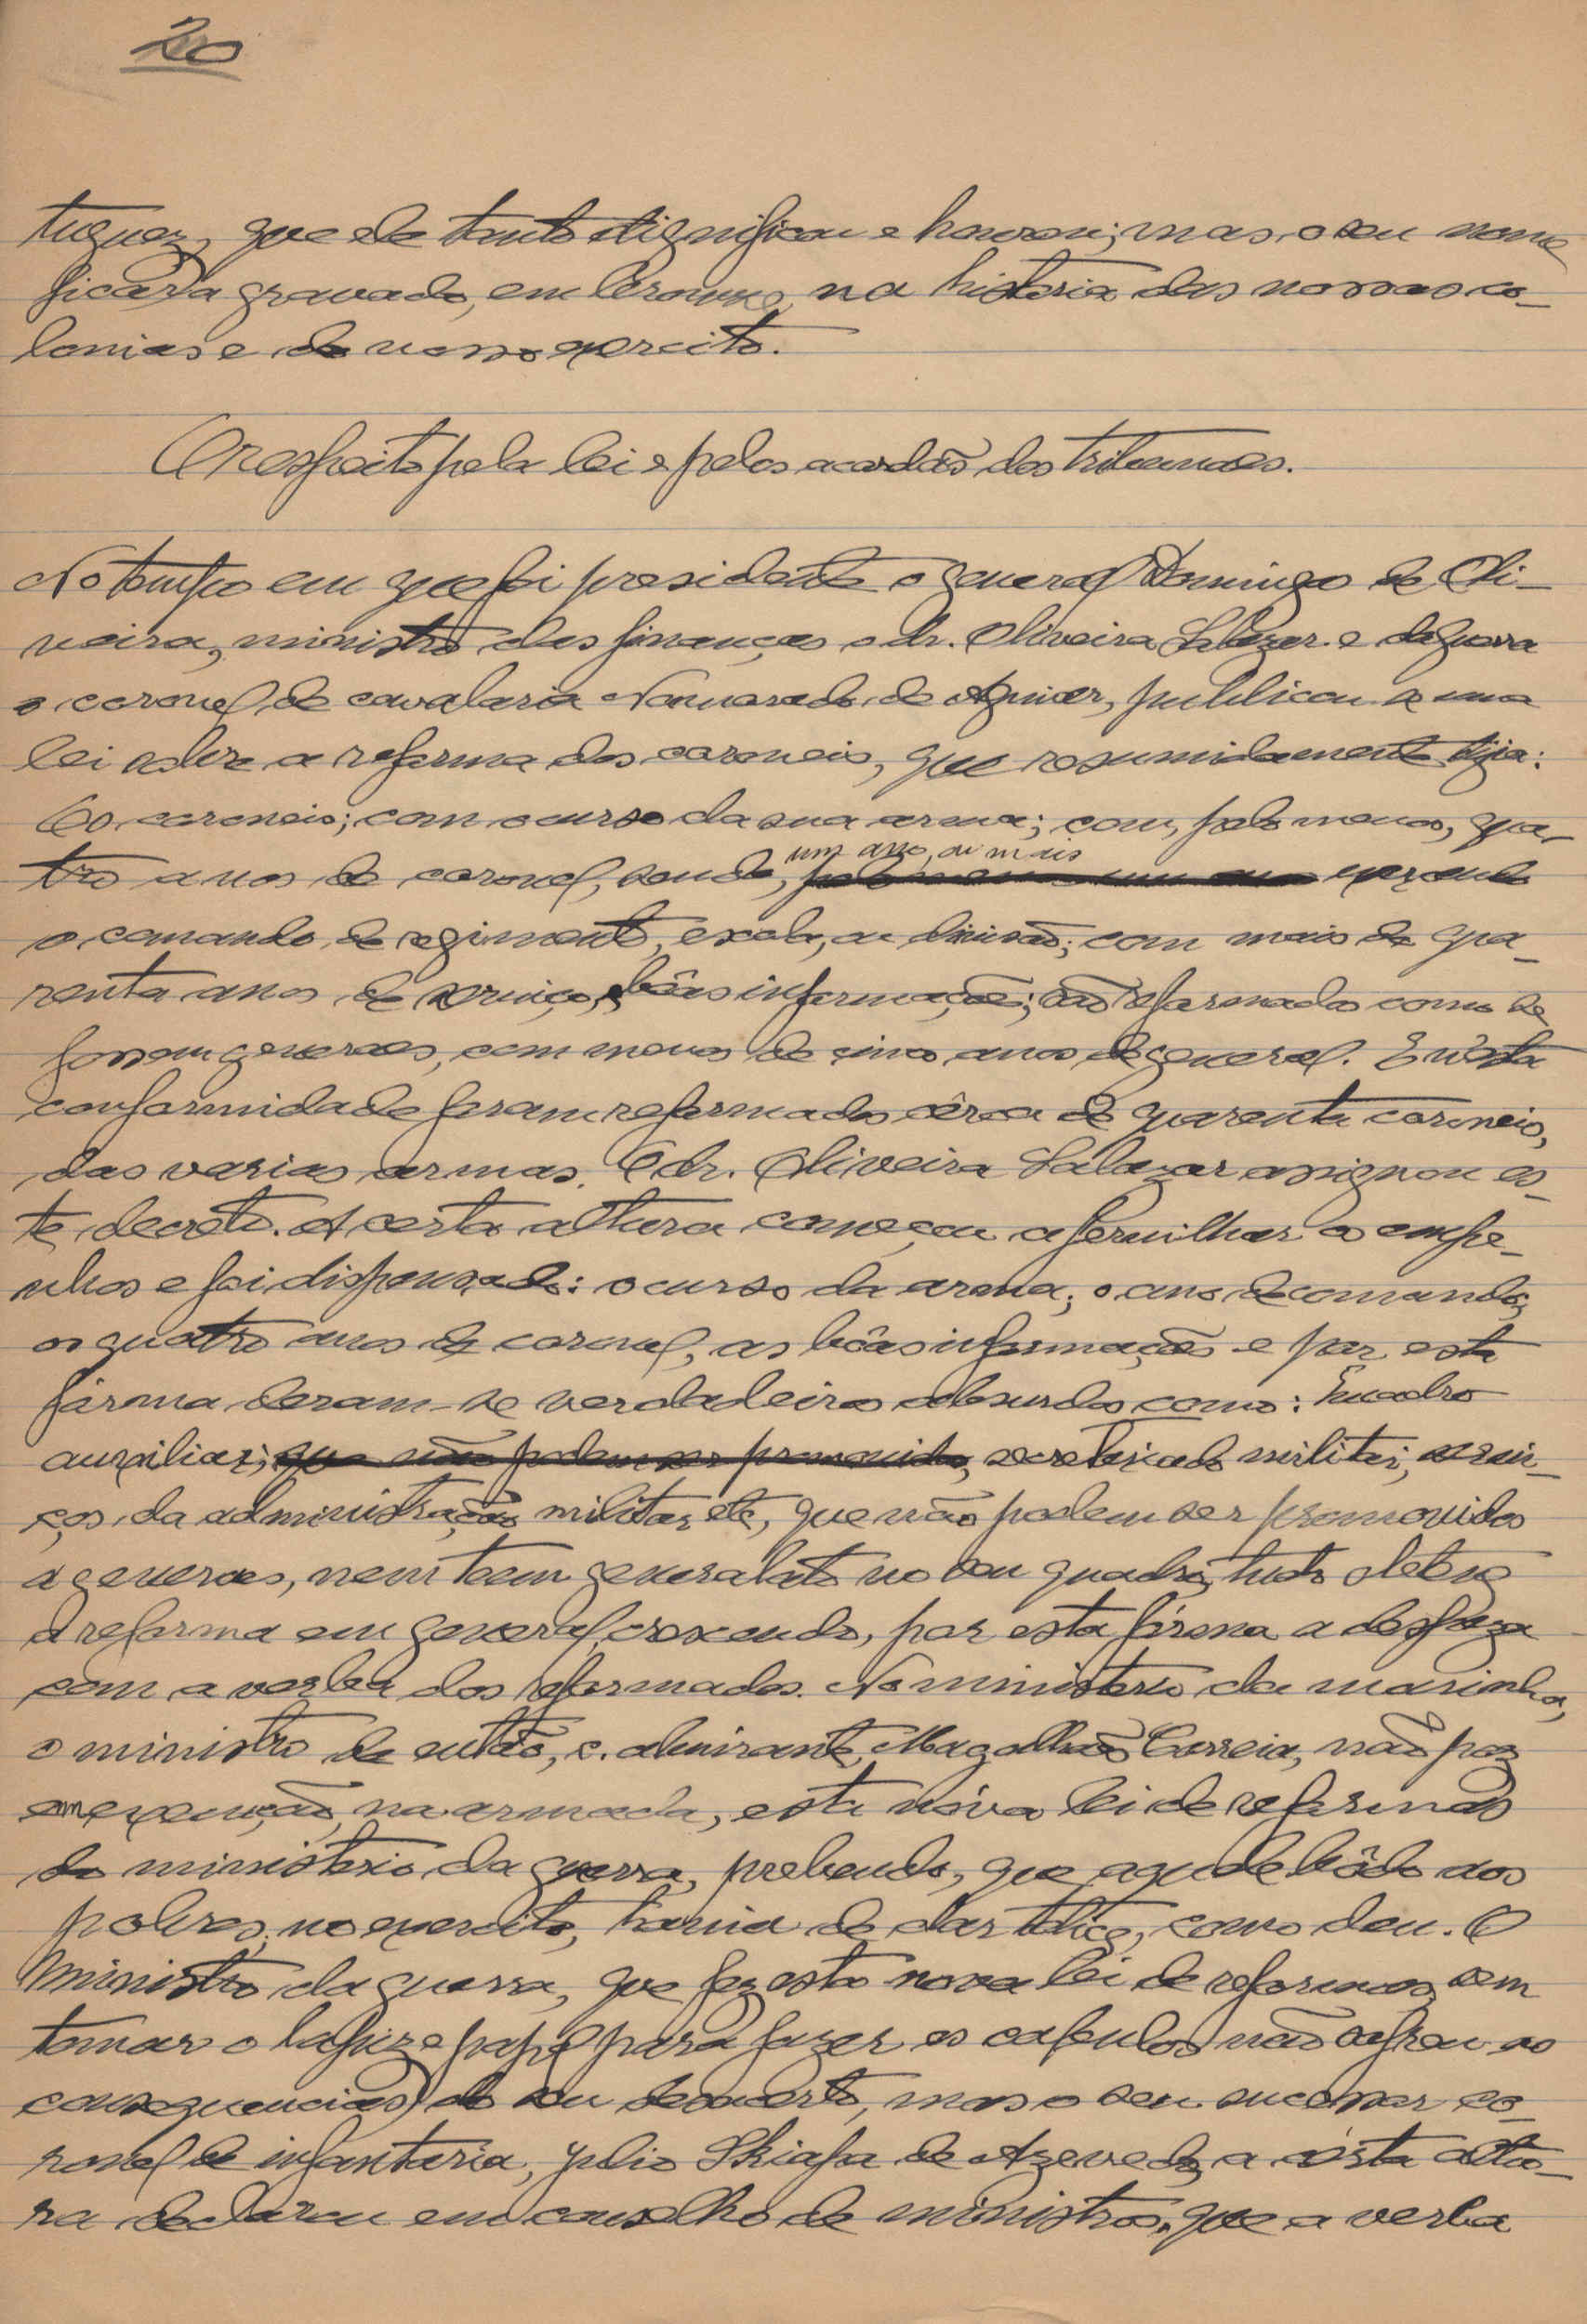 20
tuguez, que ele tanto dignificou e honrou; mas, o seu nome
ficará gravado, em bronze, na historia das nossas co-
lonias e do nosso exercito.
O respeito pela lei e pelos acordãos dos tribunaes.
No tempo em que foi presidente o general Domingo de Oli-
veira, ministro das finanças o dr. Oliveira Salazar e da guerra
o coronel de cavalaria Namorado de Aguiar, publicou-se uma
lei sobre a reforma dos coroneis, que resumidamente dizia:
Os coroneis; com o curso da sua arma; com, pelo menos, qua-
tro anos de coronel, sendo, um ano, ou mais exercendo
o comando de regimento, escola, ou divisão; com mais de qua-
renta anos de serviço, e bôas informações; são reformados como se
fossem generaes, com menos de cinco anos de general. E n'esta
conformidade foram reformados cêrca de quarenta coroneis,
das varias armas. O dr. Oliveira Salazar assignou es-
te decreto. A certa altura começou a fervilhar os empe-
nhos e foi dispensado: o curso da arma; o ano de comando,
os quatro anos de coronel, as bôas informações e por esta
fórma deram-se verdadeiros absurdos como: quadro
auxiliar; secretariado militar, servi-
ços da administração militar etc, que não podem ser promovidos
a generaes, nem teem generalato no seu quadro, tudo obteve
a reforma em general, crescendo, por esta fórma a despeza
com a verba dos reformados. No ministerio da marinha,
o ministro de então, c. almirante, Magalhães Correia, não poz
em execução, na armada, esta nova lei de reformas
do ministerio da guerra, prevendo, que aquele bôdo aos
pobres, no exercito, havia de dar como deu. O
ministro da guerra, que fez esta nova lei de reformas, sem
tomar o lapis e papel para fazer os calculos não sofreu as
consequencias do seu desacerto, mas o seu sucessor co-
ronel de infantaria, Julio Skiapa de Azevedo, a certa altu-
ra declarou em conselho de ministros, que a verba